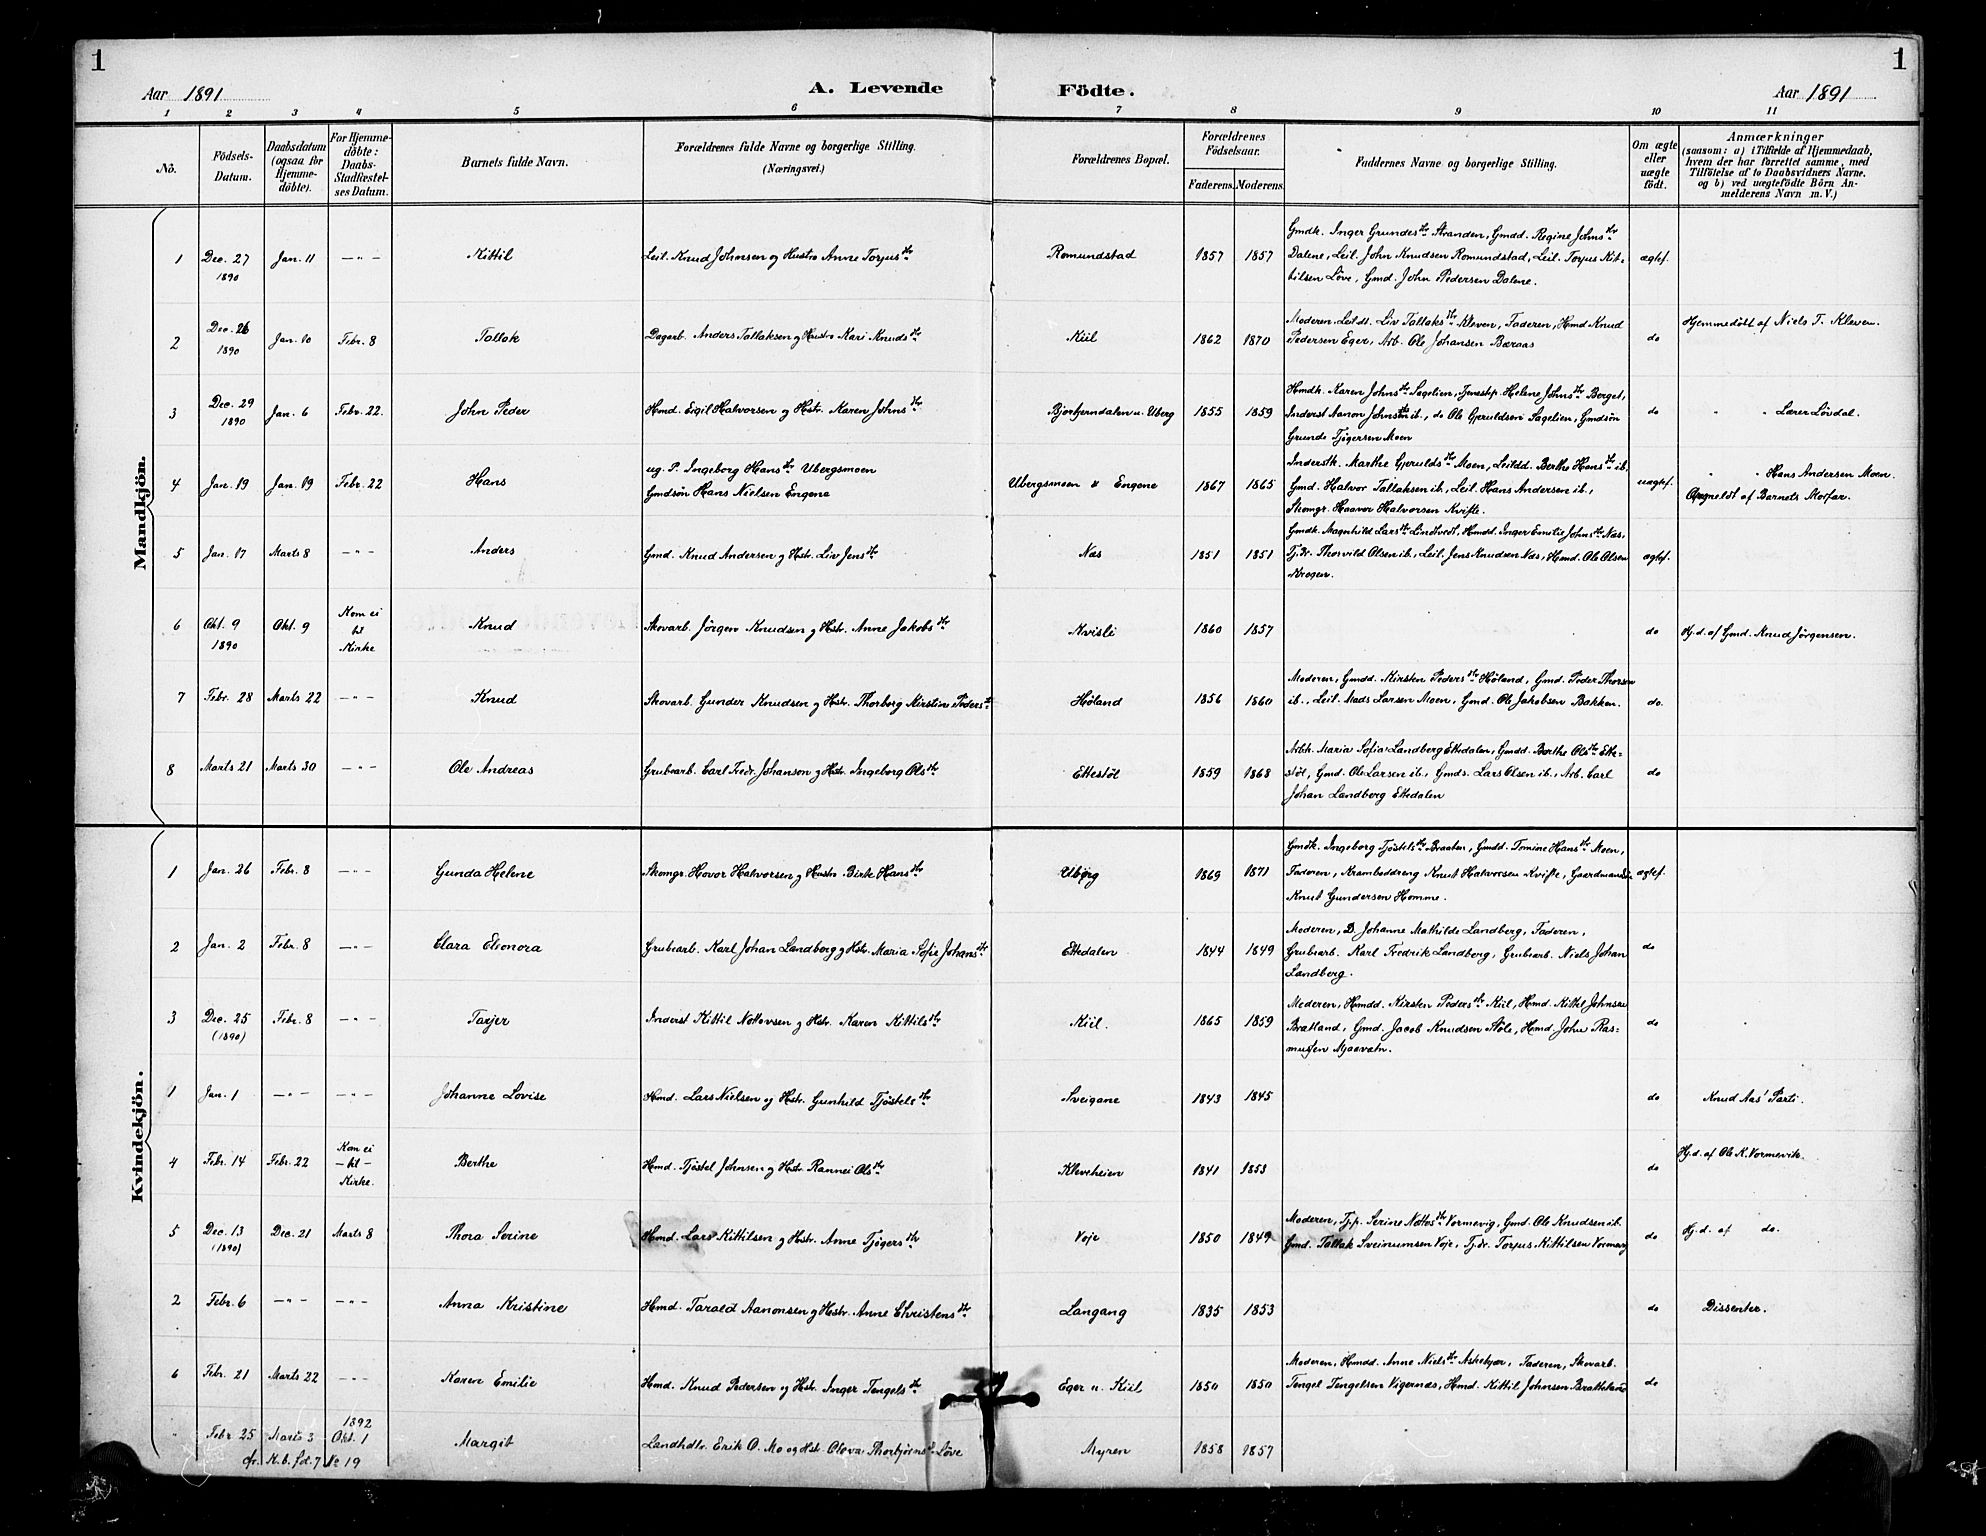 1
1
Aar 1891
A. Levende
Födte.
Aar 1891
1 2 3 4 5 6 7 8 9 10 11
No.
Födsels-Datum.
Daabsdatum (ogsaa for Hjemme-döbte).
For Hjemme-döbte: Daabs-Stadfæstel-ses Datum.
Barnets fulde Navn.
Forældrenes fulde Navne og borgerlige Stilling.
(Næringsvei.)
Forældrenes Bopæl.
Forældrenes Födselsaar.
Faderens. Moderens.
Faddernes Navne og borgerlige Stilling.
Om ægte eller uægte födt.
Anmærkninger
(saasom: a) i Tilfælde af Hjemmedaab, hvem der har forrettet samme, med Tilföielse af to Daabsvidners Navne, og b) ved uægtefödte Börn An-melderens Navn m. V.)
Mandkjön.
1 Dec. 27 1890 Jan. 11 — " — Kittil Leil. Knud Johnsen og Hustro Anne Torjusdtr Romundstad 1857 1857
Gmdk. Inger Grundesdtr Stranden, Gmdd. Regine Johnsdtr
Dalene, Leil. John Knudsen Romundstad, Leil. Torjus Kit-
tilsen Löve, Gmd. John Pedersen Dalene.
ægtef.
2 Dec. 26 1890 Jan. 10 Febr. 8 Tallak Dagarb. Anders Tallaksen og Hustro Kari Knudsdtr Kiil 1862 1870
Moderen, Leildt. Liv Tallaksdtr Kleven, Faderen, Hmd Knud
Pedersen Eger, Arb. Ole Johansen Bæraas
do Hjemmedöbt af Niels T. Kleven.
3 Dec. 29 1890 Jan. 6 Febr. 22. John Peder Hmd. Eigil Halvorsen og Hstr. Karen Johnsdtr Bjorbjerndalen u. Uberg 1855 1859
Hmdk. Karen Johnsdtr Sagelien, Tjenestep. Helene Johnsdtr Borget,
Inderst Aanon Johnsen ib., do Ole Gjeruldsen Sagelien, Gmdsön
Grunde Tjögersen Moen
do " " Lærer Lövdal.
4 Jan. 19 Jan. 19 Febr. 22 Hans
ug. P. Ingeborg Hansdtr Ubergsmoen
Gmdsön Hans Nielsen Engene
Ubergsmoen & Engene 1867 1865
Inderstk. Marthe Gjeruldsdtr Moen, Leildd. Berthe Hansdtr ib.
Gmd. Halvor Tallaksen ib., Leil. Hans Andersen ib.,
Skomgr. Haavor Halvorsen Kvifte.
uægtef. " " Hans Andersen Moen.
Anmeldt af Barnets Morfar.
5 Jan. 17 Marts 8 — " — Anders Gmd. Knud Andersen og Hstr. Liv Jensdtr Næs 1851 1851
Gmdk. Magnhild Larsdtr Lindtvedt, Hmdd. Inger Emilie Johnsdtr Næs,
Tj.dr. Thorvild Olsen ib., Leil. Jens Knudsen Næs, Hmd. Ole Olsen
Krogen.
ægtef.
6 Okt. 9 1890 Okt. 9 Kom ei til Kirke Knud Skovarb. Jörgen Knudsen og Hstr. Anne Jakobsdtr Kvisli 1860 1857 do Hj.d. af Gmd. Knud Jörgensen.
7 Febr. 28 Marts 22 — " — Knud Skovarb. Gunder Knudsen og Hstr. Thorborg Kirstine Pedersdtr Höland 1856 1860
Moderen, Gmdd. Kirsten Pedersdtr Höland, Gmd. Peder Thorsen
ib., Leil. Mads Larsen Moen, Gmd. Ole Jakobsen Bakken.
do.
8 Marts 21 Marts 30 — " — Ole Andreas Grubearb. Carl Fredr. Johanson og Hstr. Ingeborg Olsdtr Ettestöl 1859 1868
Arbk. Maria Sofia Landberg Ettedalen, Gmdd. Berthe Olsdtr Ette-
stöl, Gmd. Ole Larsen ib., Gmds. Lars Olsen ib., Arb. Carl
Johan Landberg Ettedalen
do
Kvindekjön.
1 Jan. 26 Febr. 8 — " — Gunda Helene Skomgr. Hovor Halvorsen og Hustr. Birte Hansdtr Uberg 1869 1871
Gmdk. Ingeborg Tjöstelsdtr Braaten, Gmdd. Tomine Hansdtr Moen,
Faderen, Kramboddreng Knut Halvorsen Kvifte, Gaardmand
Knut Gundersen Homme.
ægtef.
2 Jan. 2 Febr. 8 — " — Clara Eleonora Grubearb. Karl Johan Landberg og Hstr. Maria Sofie Johansdtr Ettedalen 1844 1849
Moderen, D. Johanne Mathilde Landberg, Faderen,
Grubearb. Karl Fredrik Landberg, Grubearb. Niels Johan
Landberg.
do
3 Dec. 25 (1890) Febr. 8 — " — Tarjer Inderst Kittil Nottovsen og Hstr. Karen Kittilsdtr Kiil. 1865 1859
Moderen, Hmdd. Kirsten Pedersdtr Kiil, Hmd. Kittil Johnsen
Bratland, Gmd. Jacob Knudsen Stöle, Hmd. John Ras-
mussen Mjaavatn.
do
1 Jan. 1 — " — — " — Johanne Lovise Hmd. Lars Nielsen og Hstr. Gunhild Tjöstelsdtr Sveigane 1843 1845 do Knud Aas' Parti.
4 Febr. 14 Febr. 22 Kom ei — til — Kirke. Berthe Hmd. Tjöstel Johnsen og Hstr. Rannei Olsdtr Kleveheien 1841 1853 do Hj.d. af Ole K. Vormevik.
5 Dec. 13 (1890) Dec. 21 Marts 8 Thora Serine Hmd. Lars Kittilsen og Hstr. Anne Tjögersdtr Voje 1850 1849
Moderen, Tj.p. Serine Nottosdtr Vormevig, Gmd. Ole Knudsen ib.
Gmd. Tallak Sveinumsen Voje, Tj.dr. Torjus Kittilsen Vormevig
do Hj.d. af do.
2 Febr. 6 — " — — " — Anna Kristine Hmd. Tarald Aanonsen og Hstr. Anne Christensdtr Langang 1835 1853 do Dissenter.
6 Febr. 21 Marts 22 — " — Karen Emilie Hmd. Knud Pedersen og Hstr. Inger Tengelsdtr Eger u. Kiil 1850 1850
Moderen, Hmdd. Anne Nielsdtr Askekjær, Faderen, Skovarb.
Tengel Tengelsen Vigernæs, Hmd. Kittil Johnsen Brattland
do
" Febr 25 Marts 3 1892 Okt. 1 Margit Landhdlr. Erik O. Mo og Hstr Oleva Thorbjörnsd. Löve Myren 1858 1857
cfr. K.b. fol. 7 No 19